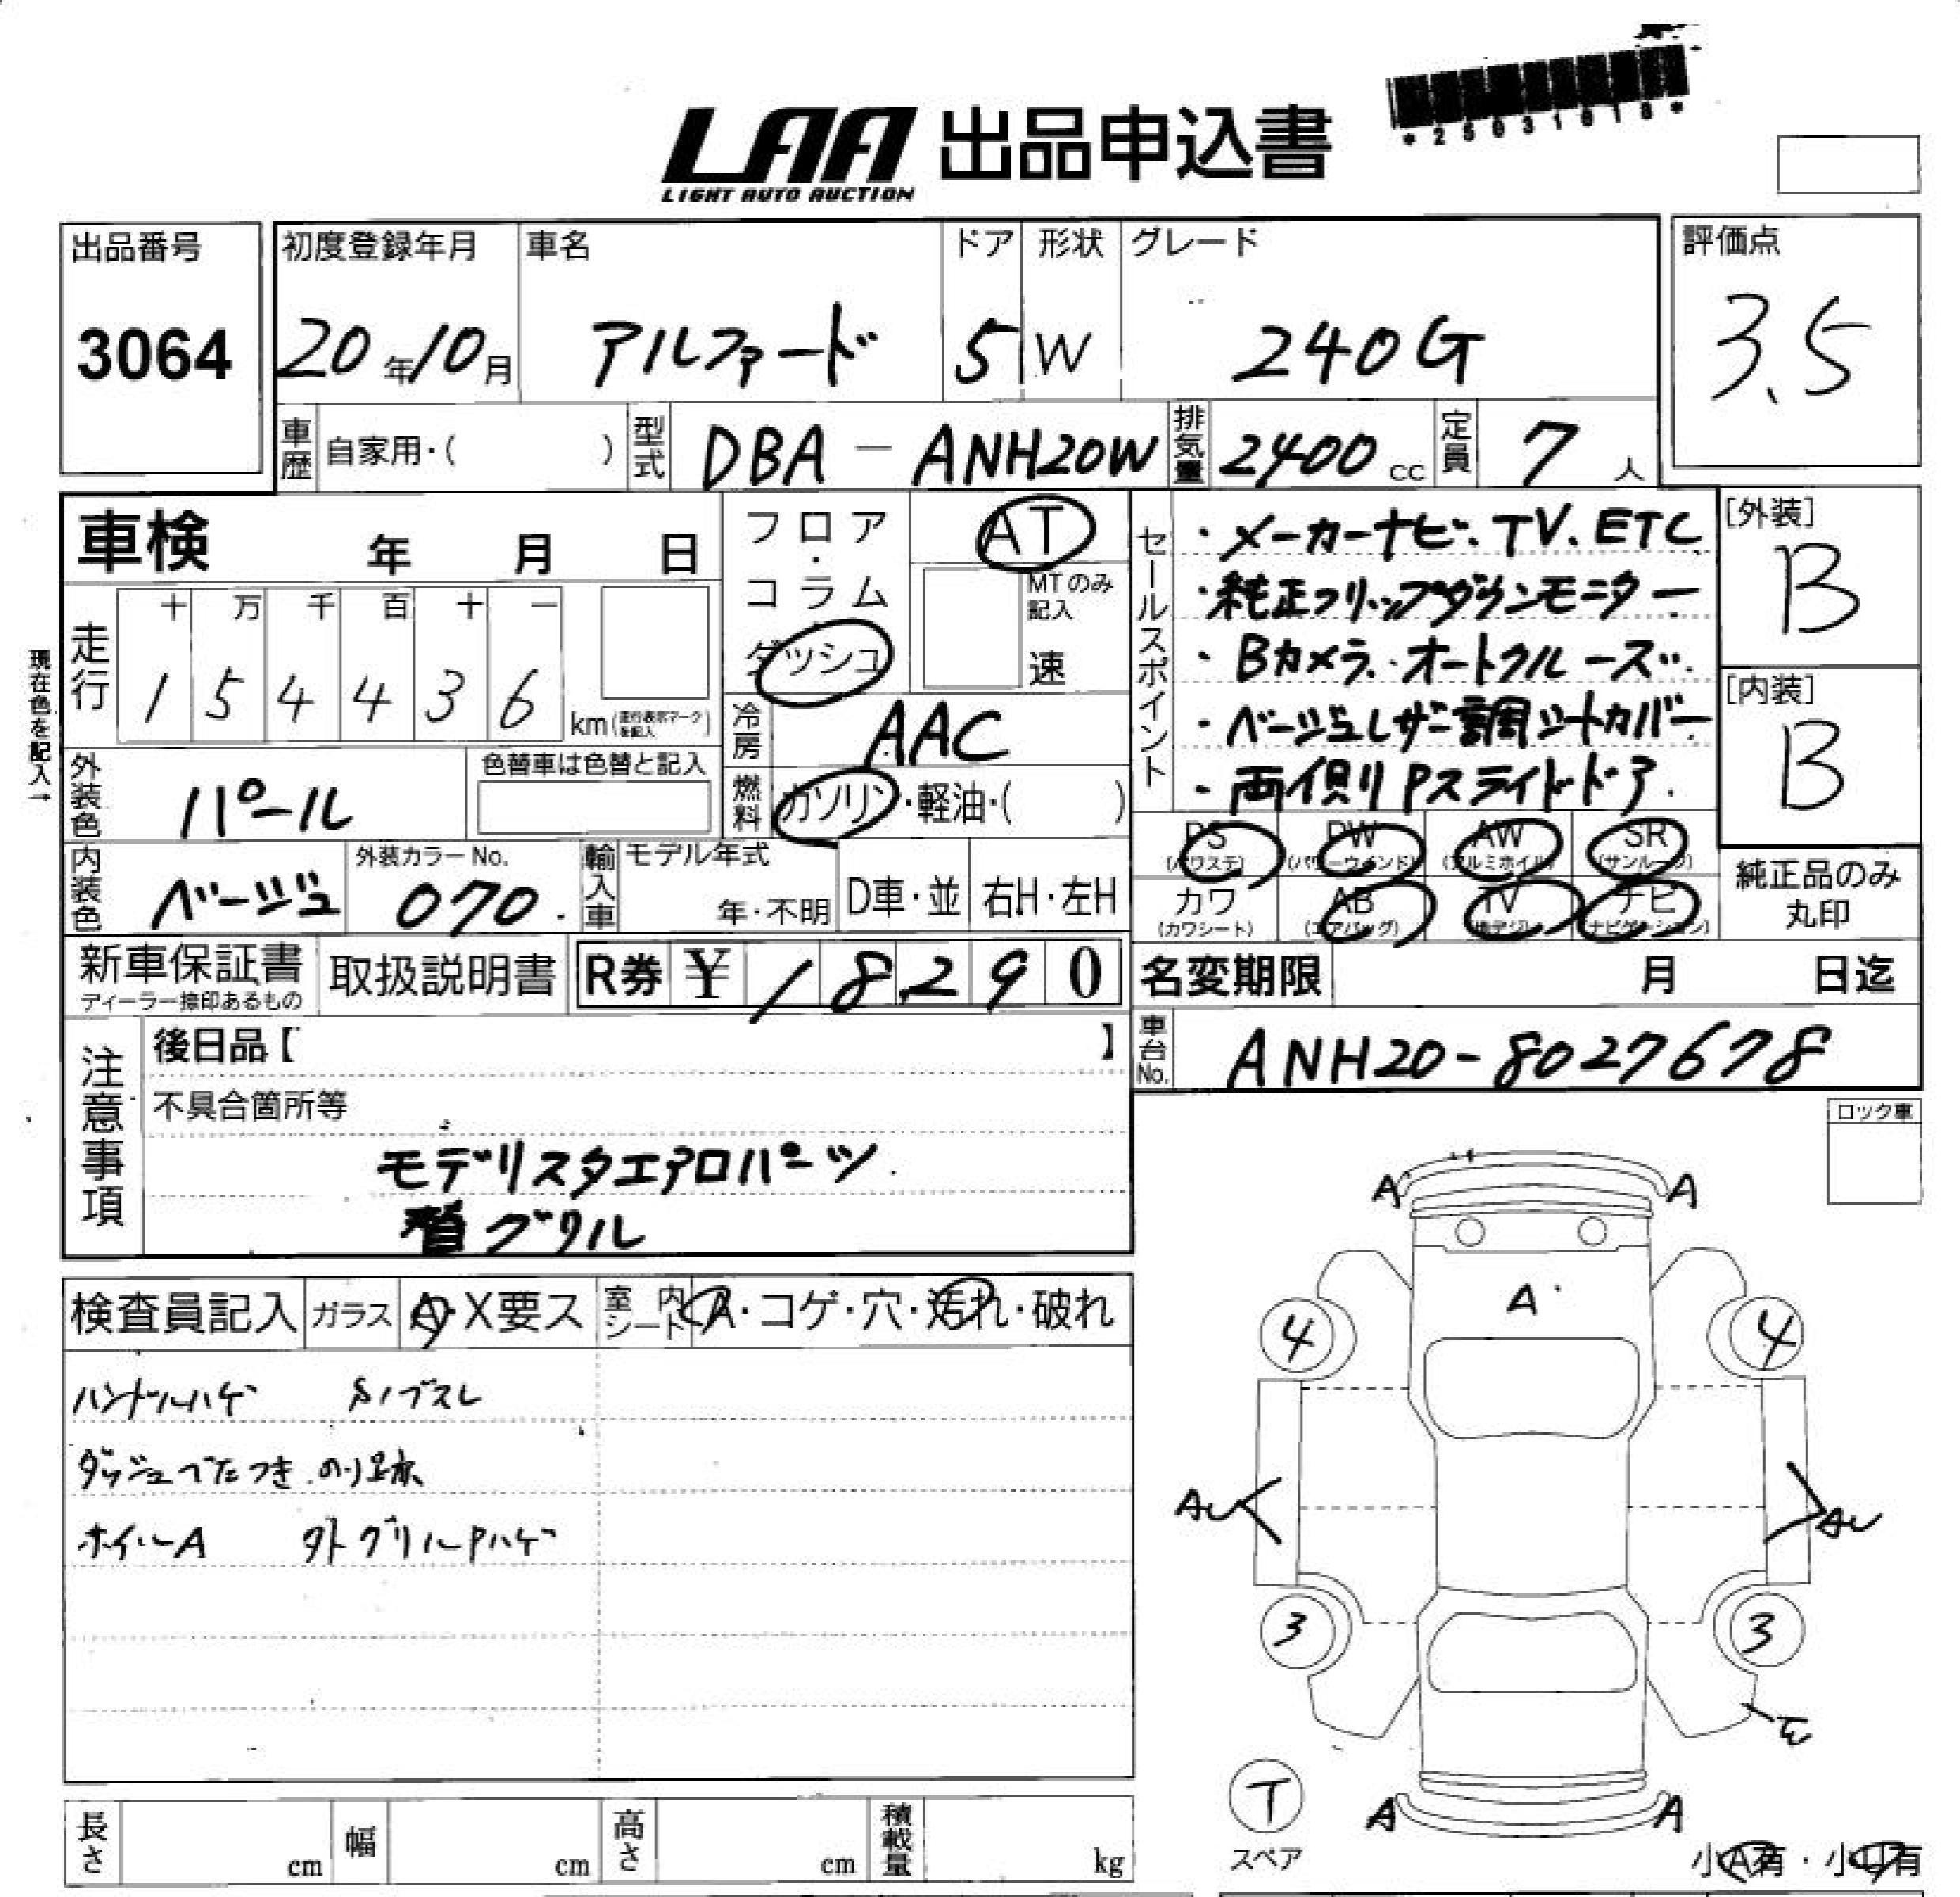 *25031018*
LAA 出品申込書
LIGHT AUTO AUCTION
出品番号 初度登録年月 車名 ドア 形状 グレード 評価点
3064 20年10月 アルファード 5 W 240G 3.5
車歴 自家用・( ) 型式 DBA-ANH20W 排気量 2400cc 定員 7人
車検 年 月 日
フロア・コラム ダッシュ
AT
MTのみ記入
速
セールスポイント
・メーカーナビ、TV、ETC
・純正フリップダウンモニター
・Bカメラ、オートクルーズ
・ベージュレザー調シートカバー
・両側Pスライドドア
[外装]
B
[内装]
B
現在色を記入→
走行 十 万 千 百 十 一
1 5 4 4 3 6 km(走行表示マークを記入)
冷房 AAC
外装色 パール 色替車は色替と記入
燃料 ガソリン・軽油・( )
PS PW AW SR
(パワステ) (パワーウィンド) (アルミホイル) (サンルーフ)
純正品のみ
丸印
内装色 ベージュ 外装カラーNo. 070 輸入車 モデル年式 年・不明 D車・並 右H・左H
カワ AB TV ナビ
(カワシート) (エアバッグ) (地デジ) (ナビゲーション)
新車保証書 取扱説明書 R券 ¥ 18290
ディーラー捺印あるもの
名変期限 月 日迄
車台No. ANH20-8027678
注意事項
後日品【 】
不具合箇所等
モデリスタエアロパーツ
グリル
ロック車
検査員記入 ガラス A・X要ス 室内シート A・コゲ・穴・汚れ・破れ
ハンドルハゲ Sノブスレ
ダッシュベたつき のり跡
ホイールA 外グリルPハゲ
A A
A
4 4
AU AU
3 3
T
スペア
A A
小A有・小U有
長さ cm 幅 cm 高さ cm 積載量 kg